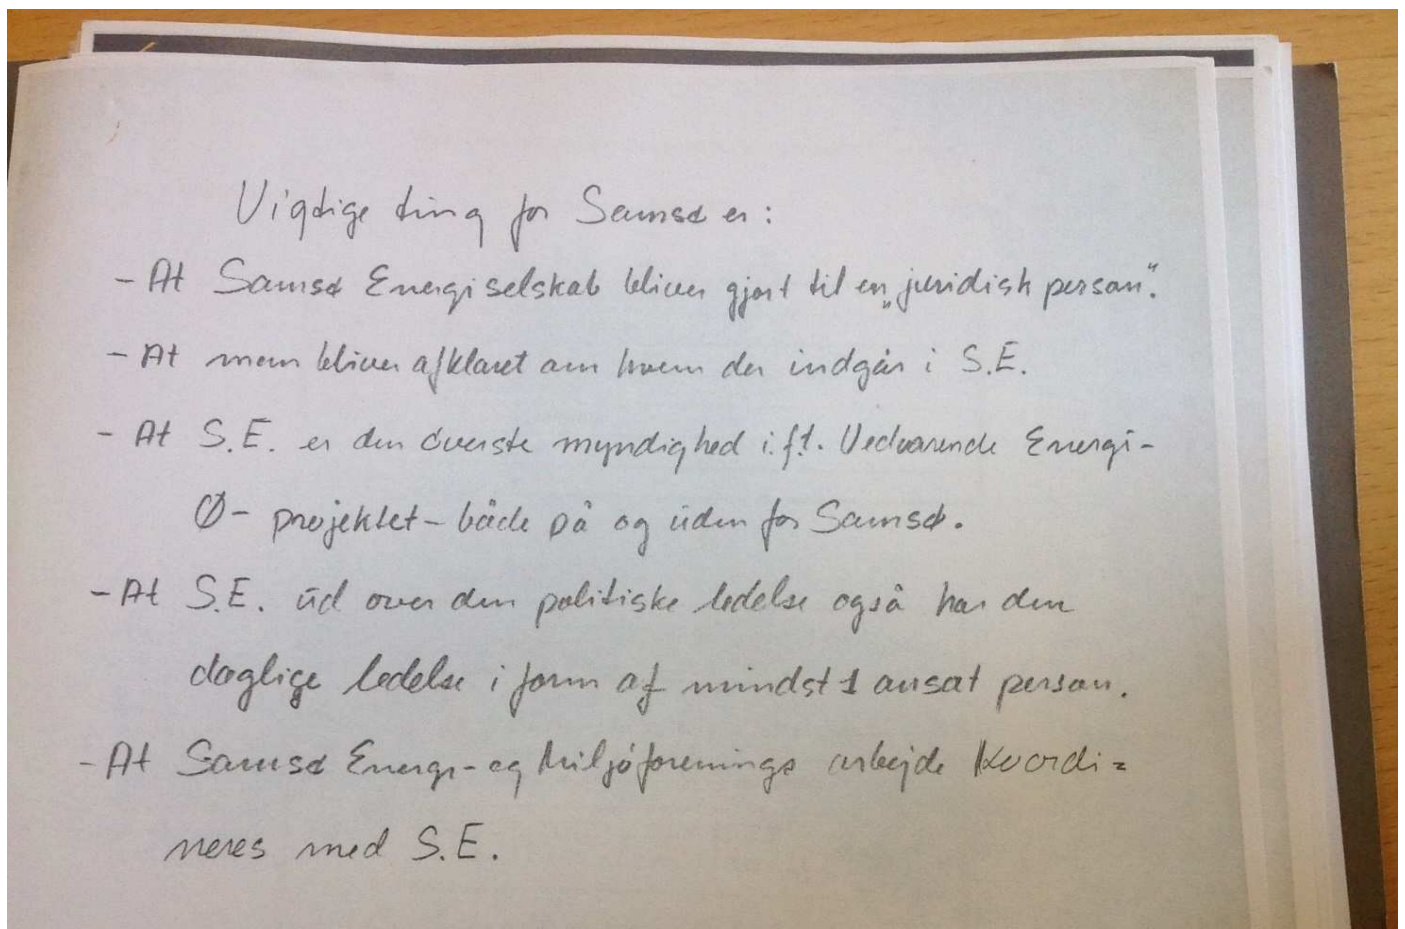 Vigtige ting for Samsø er:
- At Samsø Energiselskab bliver gjort til en „juridisk person".
- At man bliver afklaret om hvem der indgår i S.E.
- At S.E. er den øverste myndighed i.f.t. Vedvarende Energi-
Ø- projektet - både på og uden for Samsø.
- At S.E. ud over den politiske ledelse også har den
daglige ledelse i form af mindst 1 ansat person.
- At Samsø Energi- og Miljøforenings arbejde koordi=
neres med S.E.